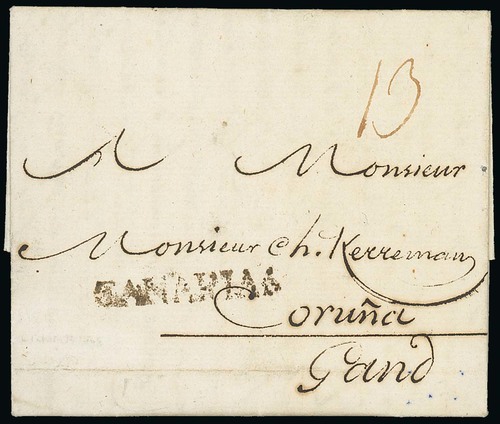 13
A Monsieur
Monsieur Ch. Kerreman
CANARIAS
Coruña
Gand